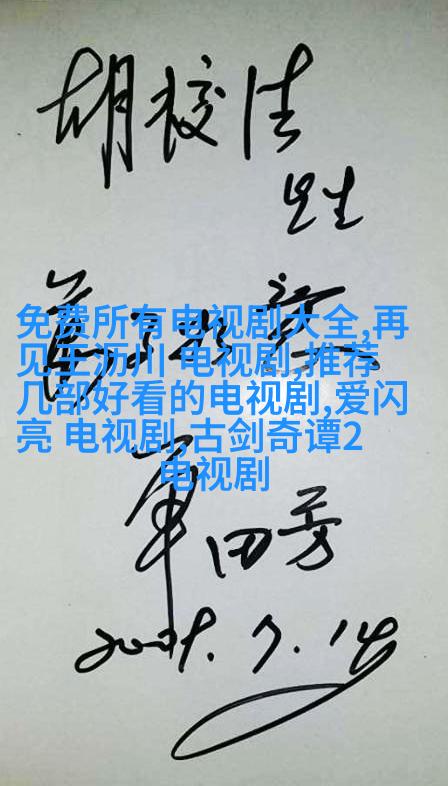 胡
先生
免费所有电视剧大全,再
见王沥川 电视剧,推荐
几部好看的电视剧,爱闪
亮 电视剧,古剑奇谭2
电视剧
单田芳